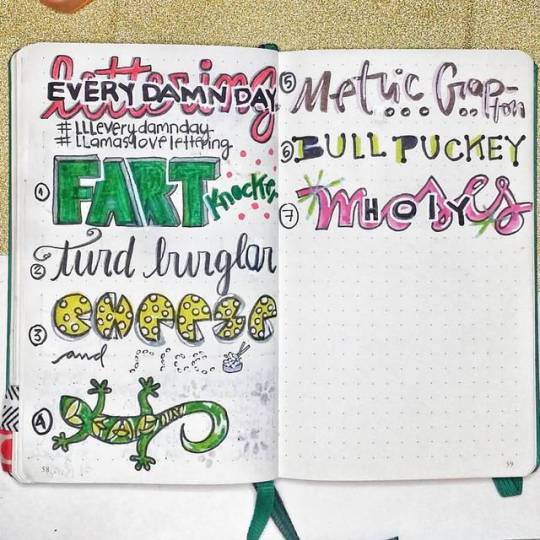 lettering
EVERY DAMN DAY
#LLLeverydamnday
#LLamaslovelettering
1 FART Knocker
2 turd burglar
3 cheese
and rice
4
58
5 Metric Crap-
ton
6 BULL PUCKEY
7 Holy moses
59